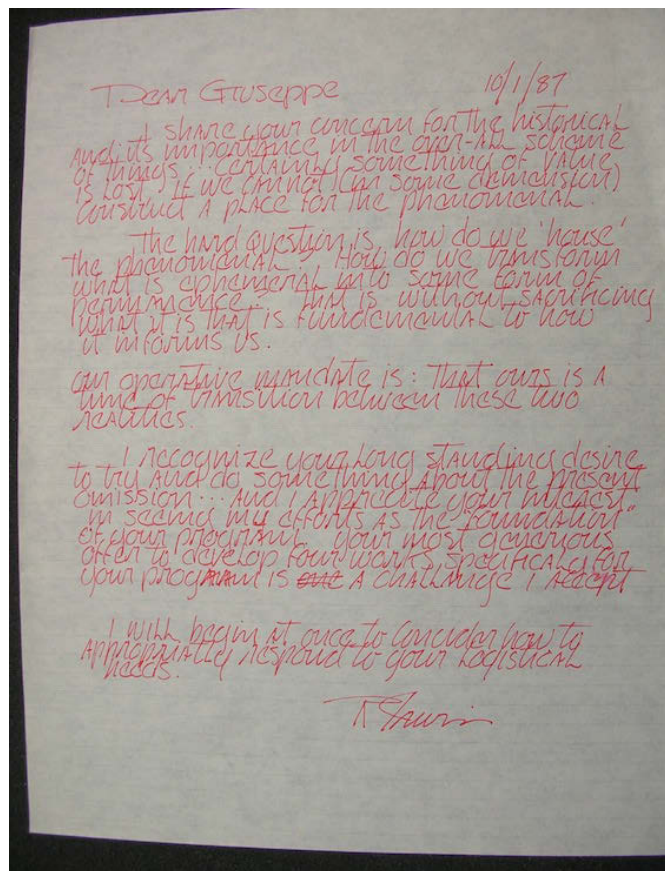 Dear Giuseppe 10/1/87
I share your concern for the historical
and its importance in the over-all scheme
of things... certainly something of value
is lost if we cannot (in some dimension)
construct a place for the phenomenal.
The hard question is how do we 'house'
the phenomenal. How do we transform
what is ephemeral into some form of
permanence - that is without sacrificing
what it is that is fundemental to how
it informs us.
our operative mandate is: that ours is a
time of transition between these two
realities.
I recognize your long standing desire
to try and do something about the present
omission... And I appreciate your interest
in seeing my efforts as the "foundation"
of your program. your most generous
offer to develop four works specifically for
your program is one a challange I accept
I will begin at once to concider how to
appropriatly respond to your logistical
needs.